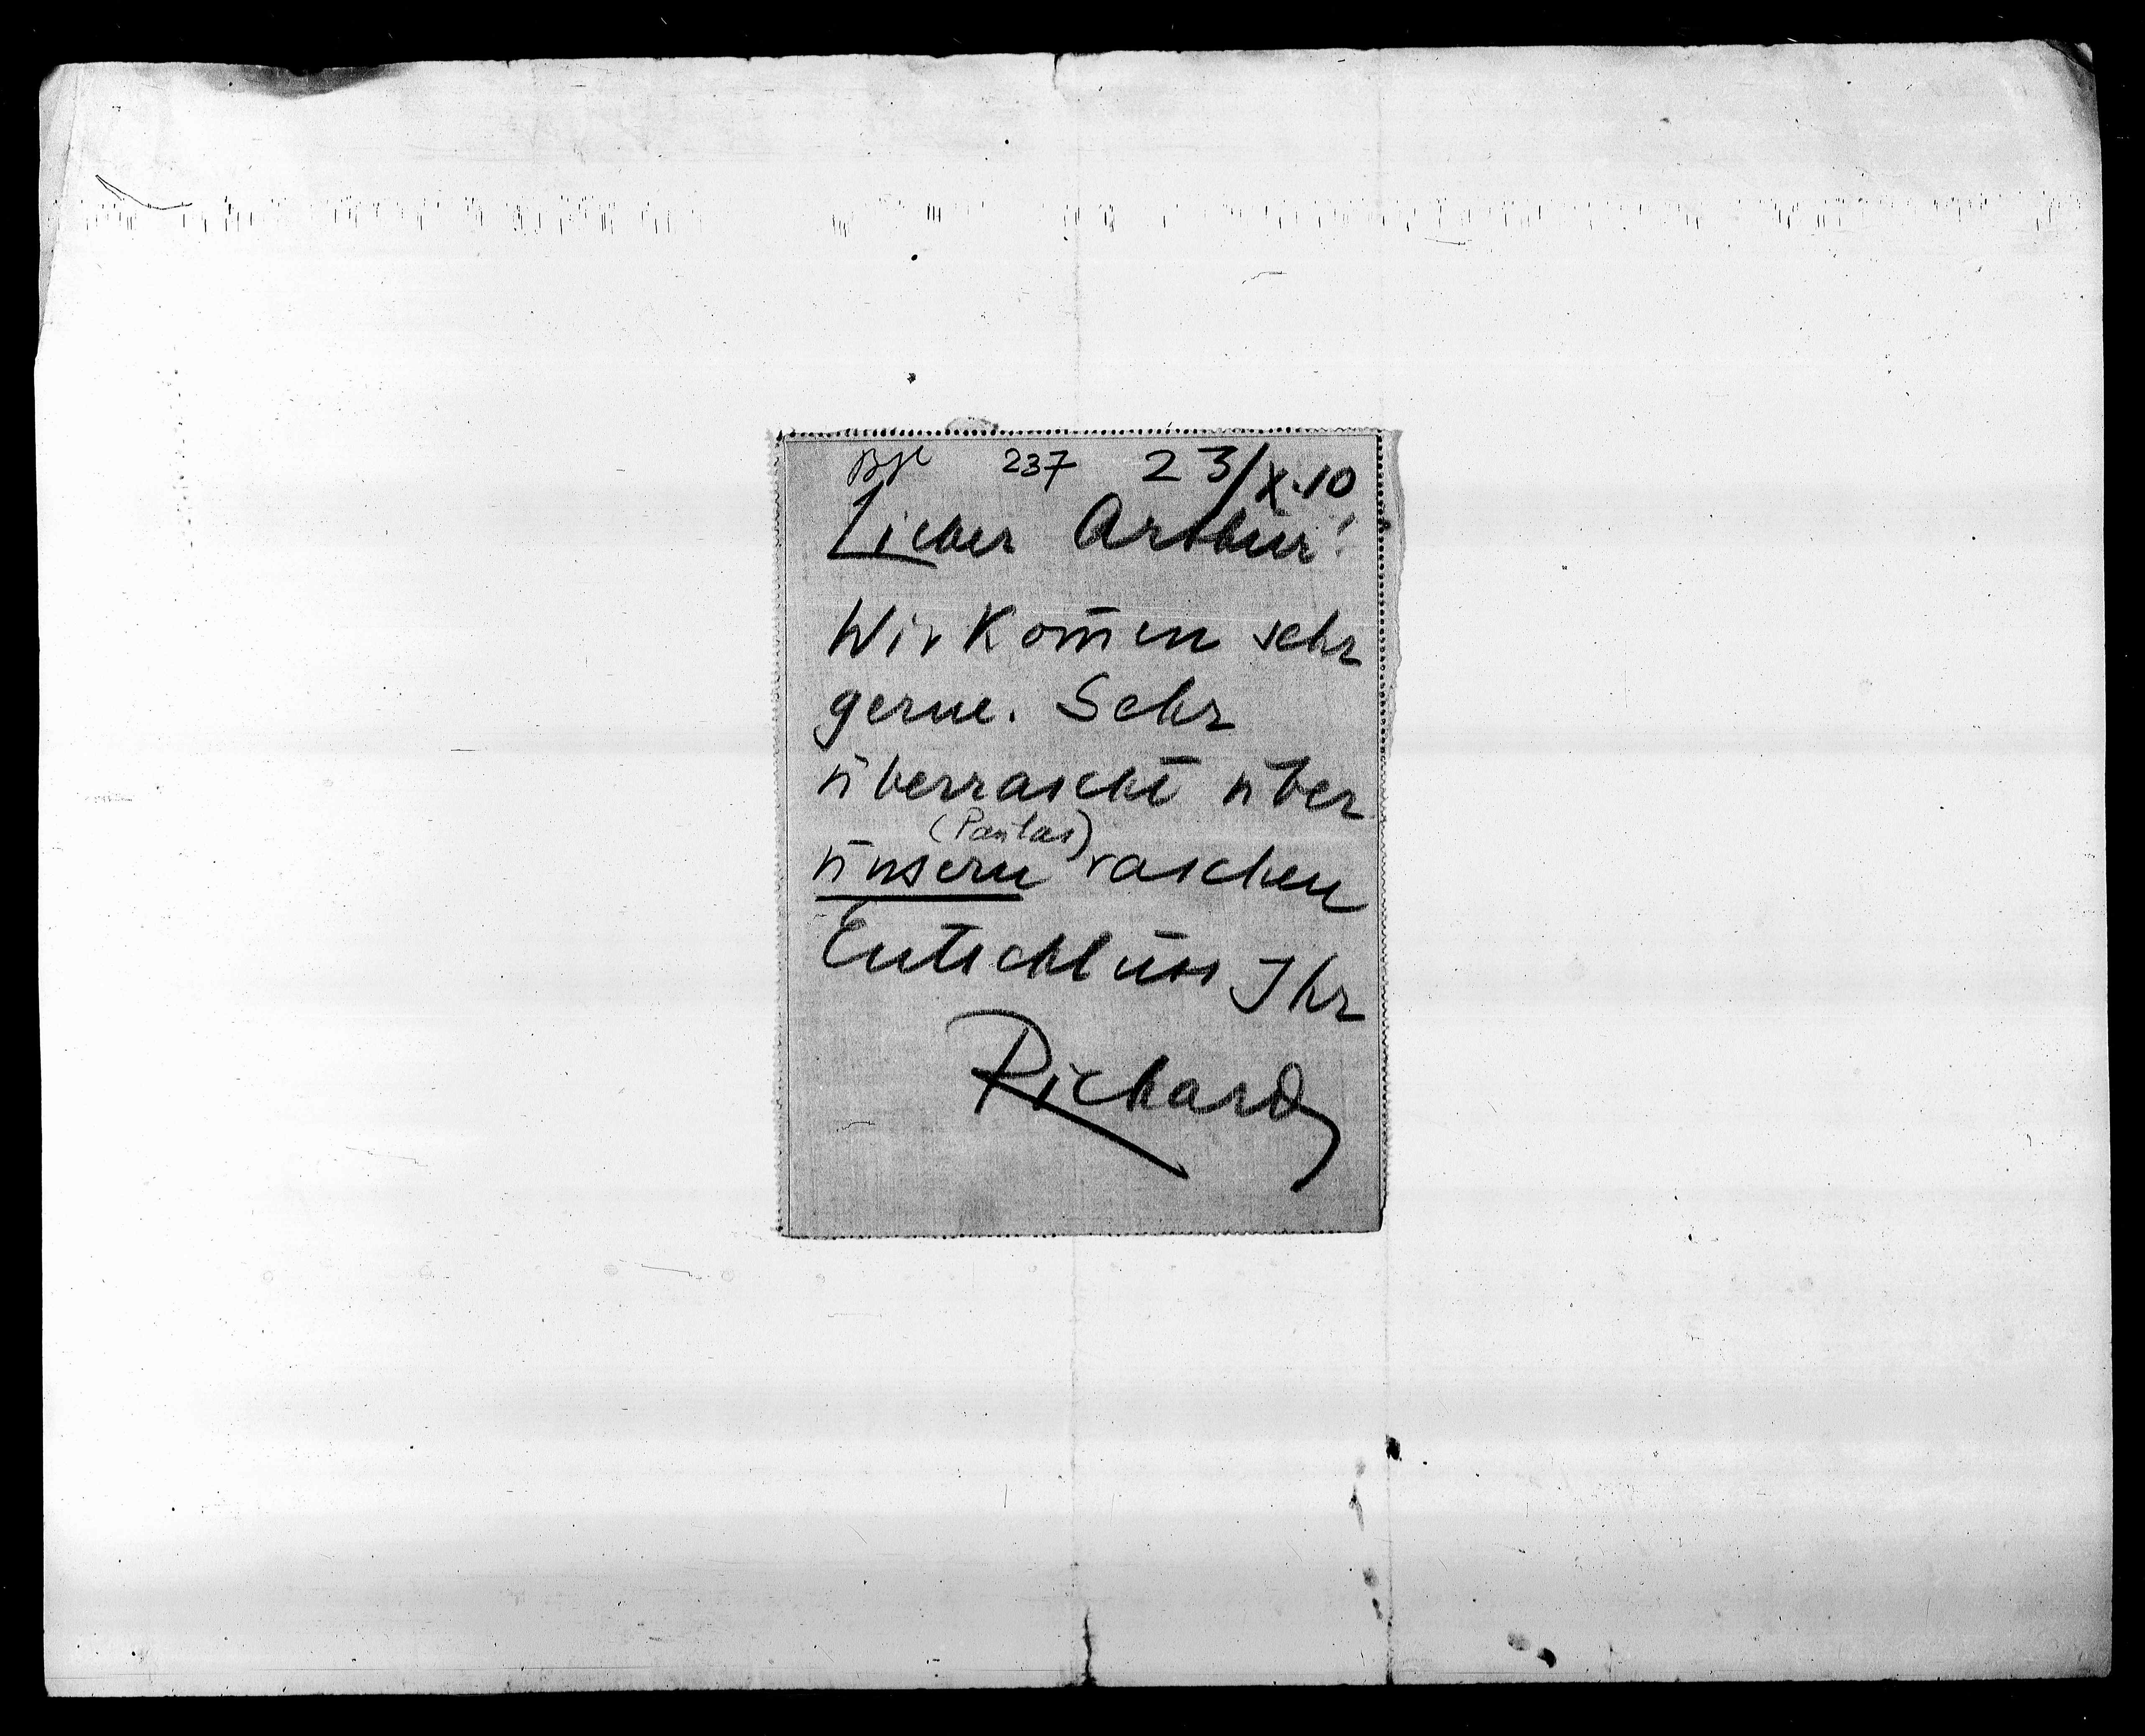 BHL 237 23/X.10
Lieber Arthur!
Wir kom̄en sehr
gerne. Sehr
überrascht über
(Paulas)
unsern raschen
Entschluss Ihr
Richard